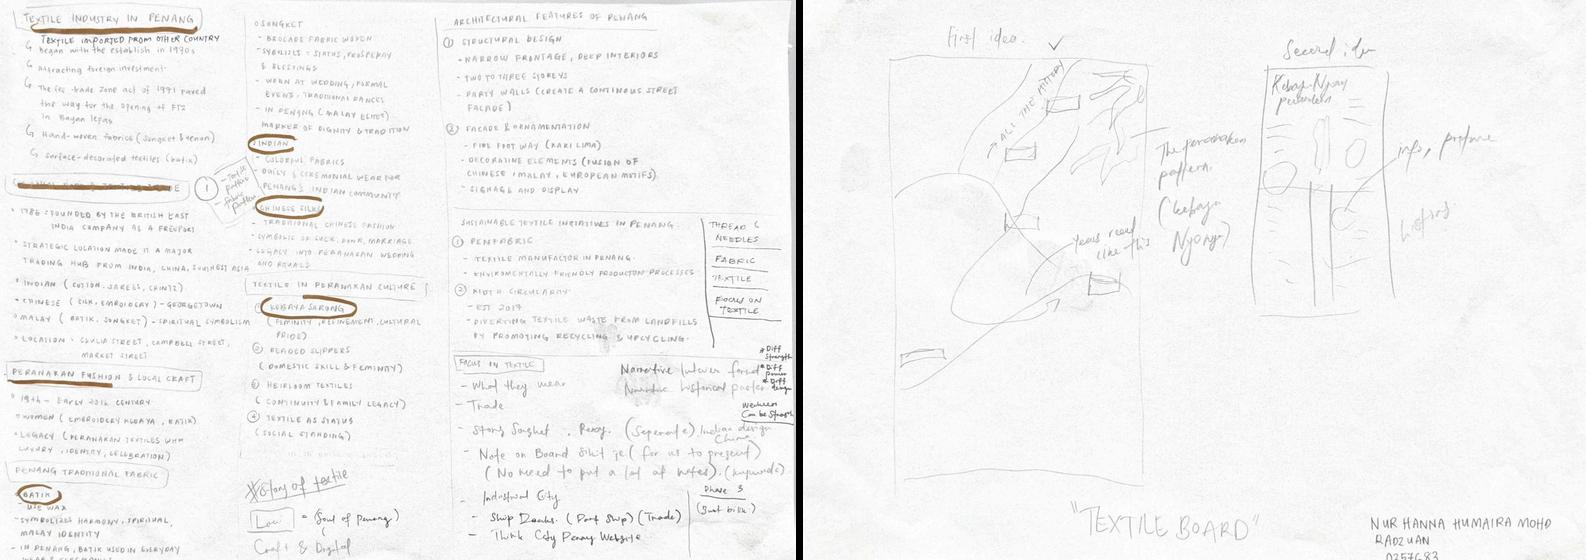 TEXTILE INDUSTRY IN PENANG
TEXTILE IMPORTED FROM OTHER COUNTRY
Began with the establish in 1970s
Attracting foreign investment
trade zone act of 1971 paved
the way for the opening of FTZ
in Bayan Lepas
Hand-woven fabrics (songket & tenun)
Surface-decorated textiles (batik)
1
- Textile pattern
- Fabric pattern
1786 : FOUNDED BY THE BRITISH EAST
INDIA COMPANY AS A FREEPORT
STRATEGIC LOCATION MADE IT A MAJOR
TRADING HUB FROM INDIA, CHINA, SOUTHEAST ASIA
INDIAN ( COTTON, SAREES, CHINTZ)
CHINESE ( SILK, EMBROIDERY) - GEORGETOWN
MALAY ( BATIK, SONGKET) - SPIRITUAL SYMBOLISM
LOCATION : CHULIA STREET, CAMPBELL STREET,
MARKET STREET
PERANAKAN FASHION & LOCAL CRAFT
19th - EARLY 20th CENTURY
WOMEN ( EMBROIDERY KEBAYA, BATIK)
LEGACY (PERANAKAN TEXTILES WITH
LUXURY, IDENTITY, CELEBRATION)
PENANG TRADITIONAL FABRIC
BATIK
- USE WAX
- SYMBOLIZES HARMONY, SPIRITUAL,
MALAY IDENTITY
- IN PENANG, BATIK USED IN EVERYDAY
SONGKET
- BROCADE FABRIC WOVEN
- SYMBOLIZES : STATUS, PROSPERITY
& BLESSINGS
- WORN AT WEDDING, FORMAL
EVENT, TRADITIONAL DANCES
- IN PENANG (MALAY ELITES)
MARKER OF DIGNITY & TRADITION
INDIAN
- COLORFUL FABRICS
- DAILY & CEREMONIAL WEAR FOR
PENANG'S INDIAN COMMUNITY
CHINESE SILKS
- TRADITIONAL CHINESE FASHION
- SYMBOLIC OF LUCK, MARRIAGE
- LEGACY INTO PERANAKAN WEDDING
AND RITUALS
TEXTILE IN PERANAKAN CULTURE
① KEBAYA SARONG
(FEMINITY, REFINEMENT, CULTURAL
PRIDE)
② BEADED SLIPPERS
( DOMESTIC SKILL & FEMINITY)
③ HEIRLOOM TEXTILES
( CONTINUITY & FAMILY LEGACY)
④ TEXTILE AS STATUS
(SOCIAL STANDING)
Story of textile
= (Soul of Penang)
Craft & Digital
ARCHITECTURAL FEATURES OF PENANG
① STRUCTURAL DESIGN
- NARROW FRONTAGE, DEEP INTERIORS
- TWO TO THREE STOREYS
- PARTY WALLS (CREATE A CONTINOUS STREET
FACADE)
② FACADE & ORNAMENTATION
- FIVE FOOT WAY (KAKI LIMA)
- DECORATIVE ELEMENTS (FUSION OF
CHINESE, MALAY, EUROPEAN MOTIFS)
- SIGNAGE AND DISPLAY
SUSTAINABLE TEXTILE INITIATIVES IN PENANG
① PENFABRIC
- TEXTILE MANUFACTOR IN PENANG
- ENVIROMENTALLY FRIENDLY PRODUCTION PROCESSES
② KLOTH CIRCULARITY
- EST 2017
- DIVERTING TEXTILE WASTE FROM LANDFILLS
BY PROMOTING RECYCLING & UPCYCLING.
THREAD &
NEEDLES
FABRIC
TEXTILE
FOCUS ON
TEXTILE
FOCUS IN TEXTILE
- What they wear
- Trade
- Story Songket , (Seperate). Indian design
China
- Note on Board Sikit je. (for us to present)
(No need to put a lot of notes). (keywords)
- Industrial City
- Ship Docks. (Port Ship) (Trade)
- Think City Penang Website
Narrative historical
* Diff
Strength
* Diff
* Diff
design
Weakness
Can be Strength
Phase 3
(Just bikin)
First idea.
ALL THE HISTORY
The peranakan
pattern.
(kebaya
Nyonya)
like this
Second idea
Kebaya Nyonya
peranakan
info, picture
"TEXTILE BOARD"
NUR HANNA HUMAIRA MOHD
RADZUAN